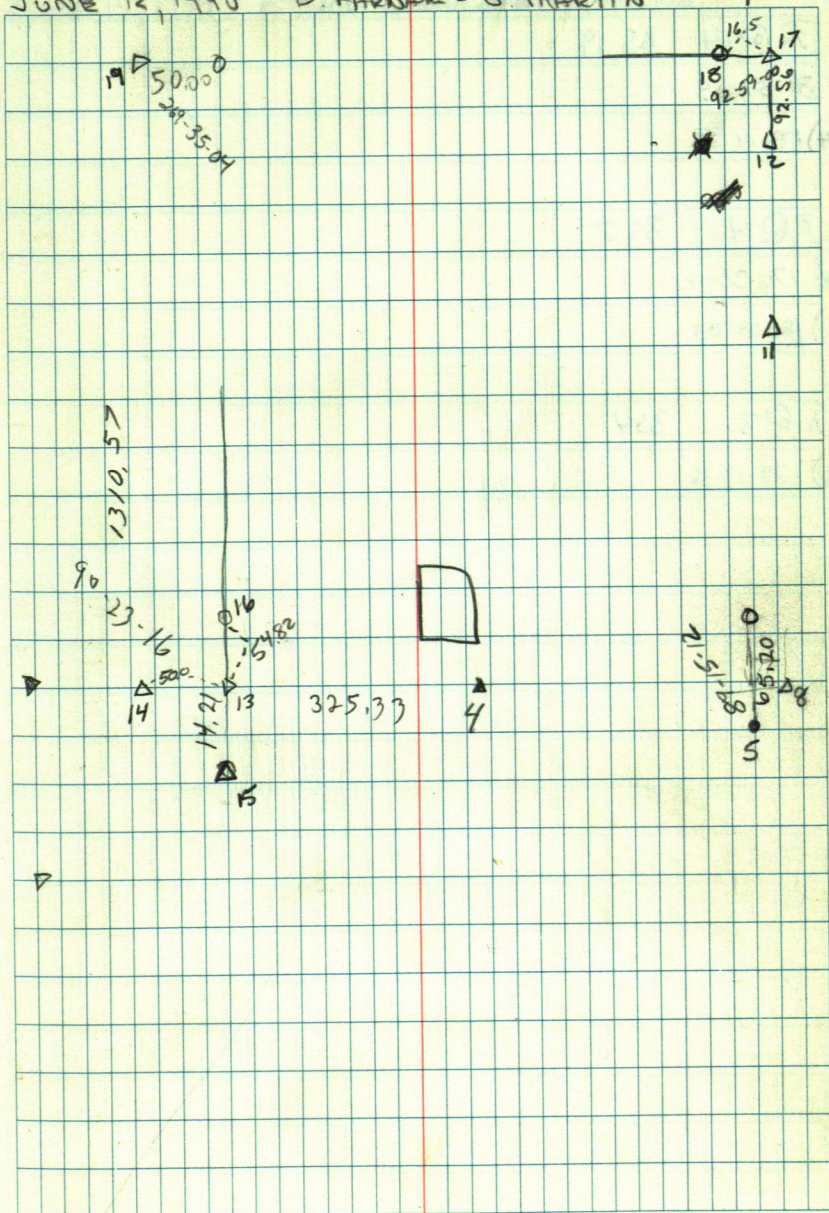 JUNE 12, 1990 D. - J. MARTIN
16.5
17
19
50.00
269-35-04
18
92-59-00
92.56
12
11
1310.57
90
23-16
16
54.82
50.0
14
13
14.21
325.33
4
15
84-15-12
65.20
8
5